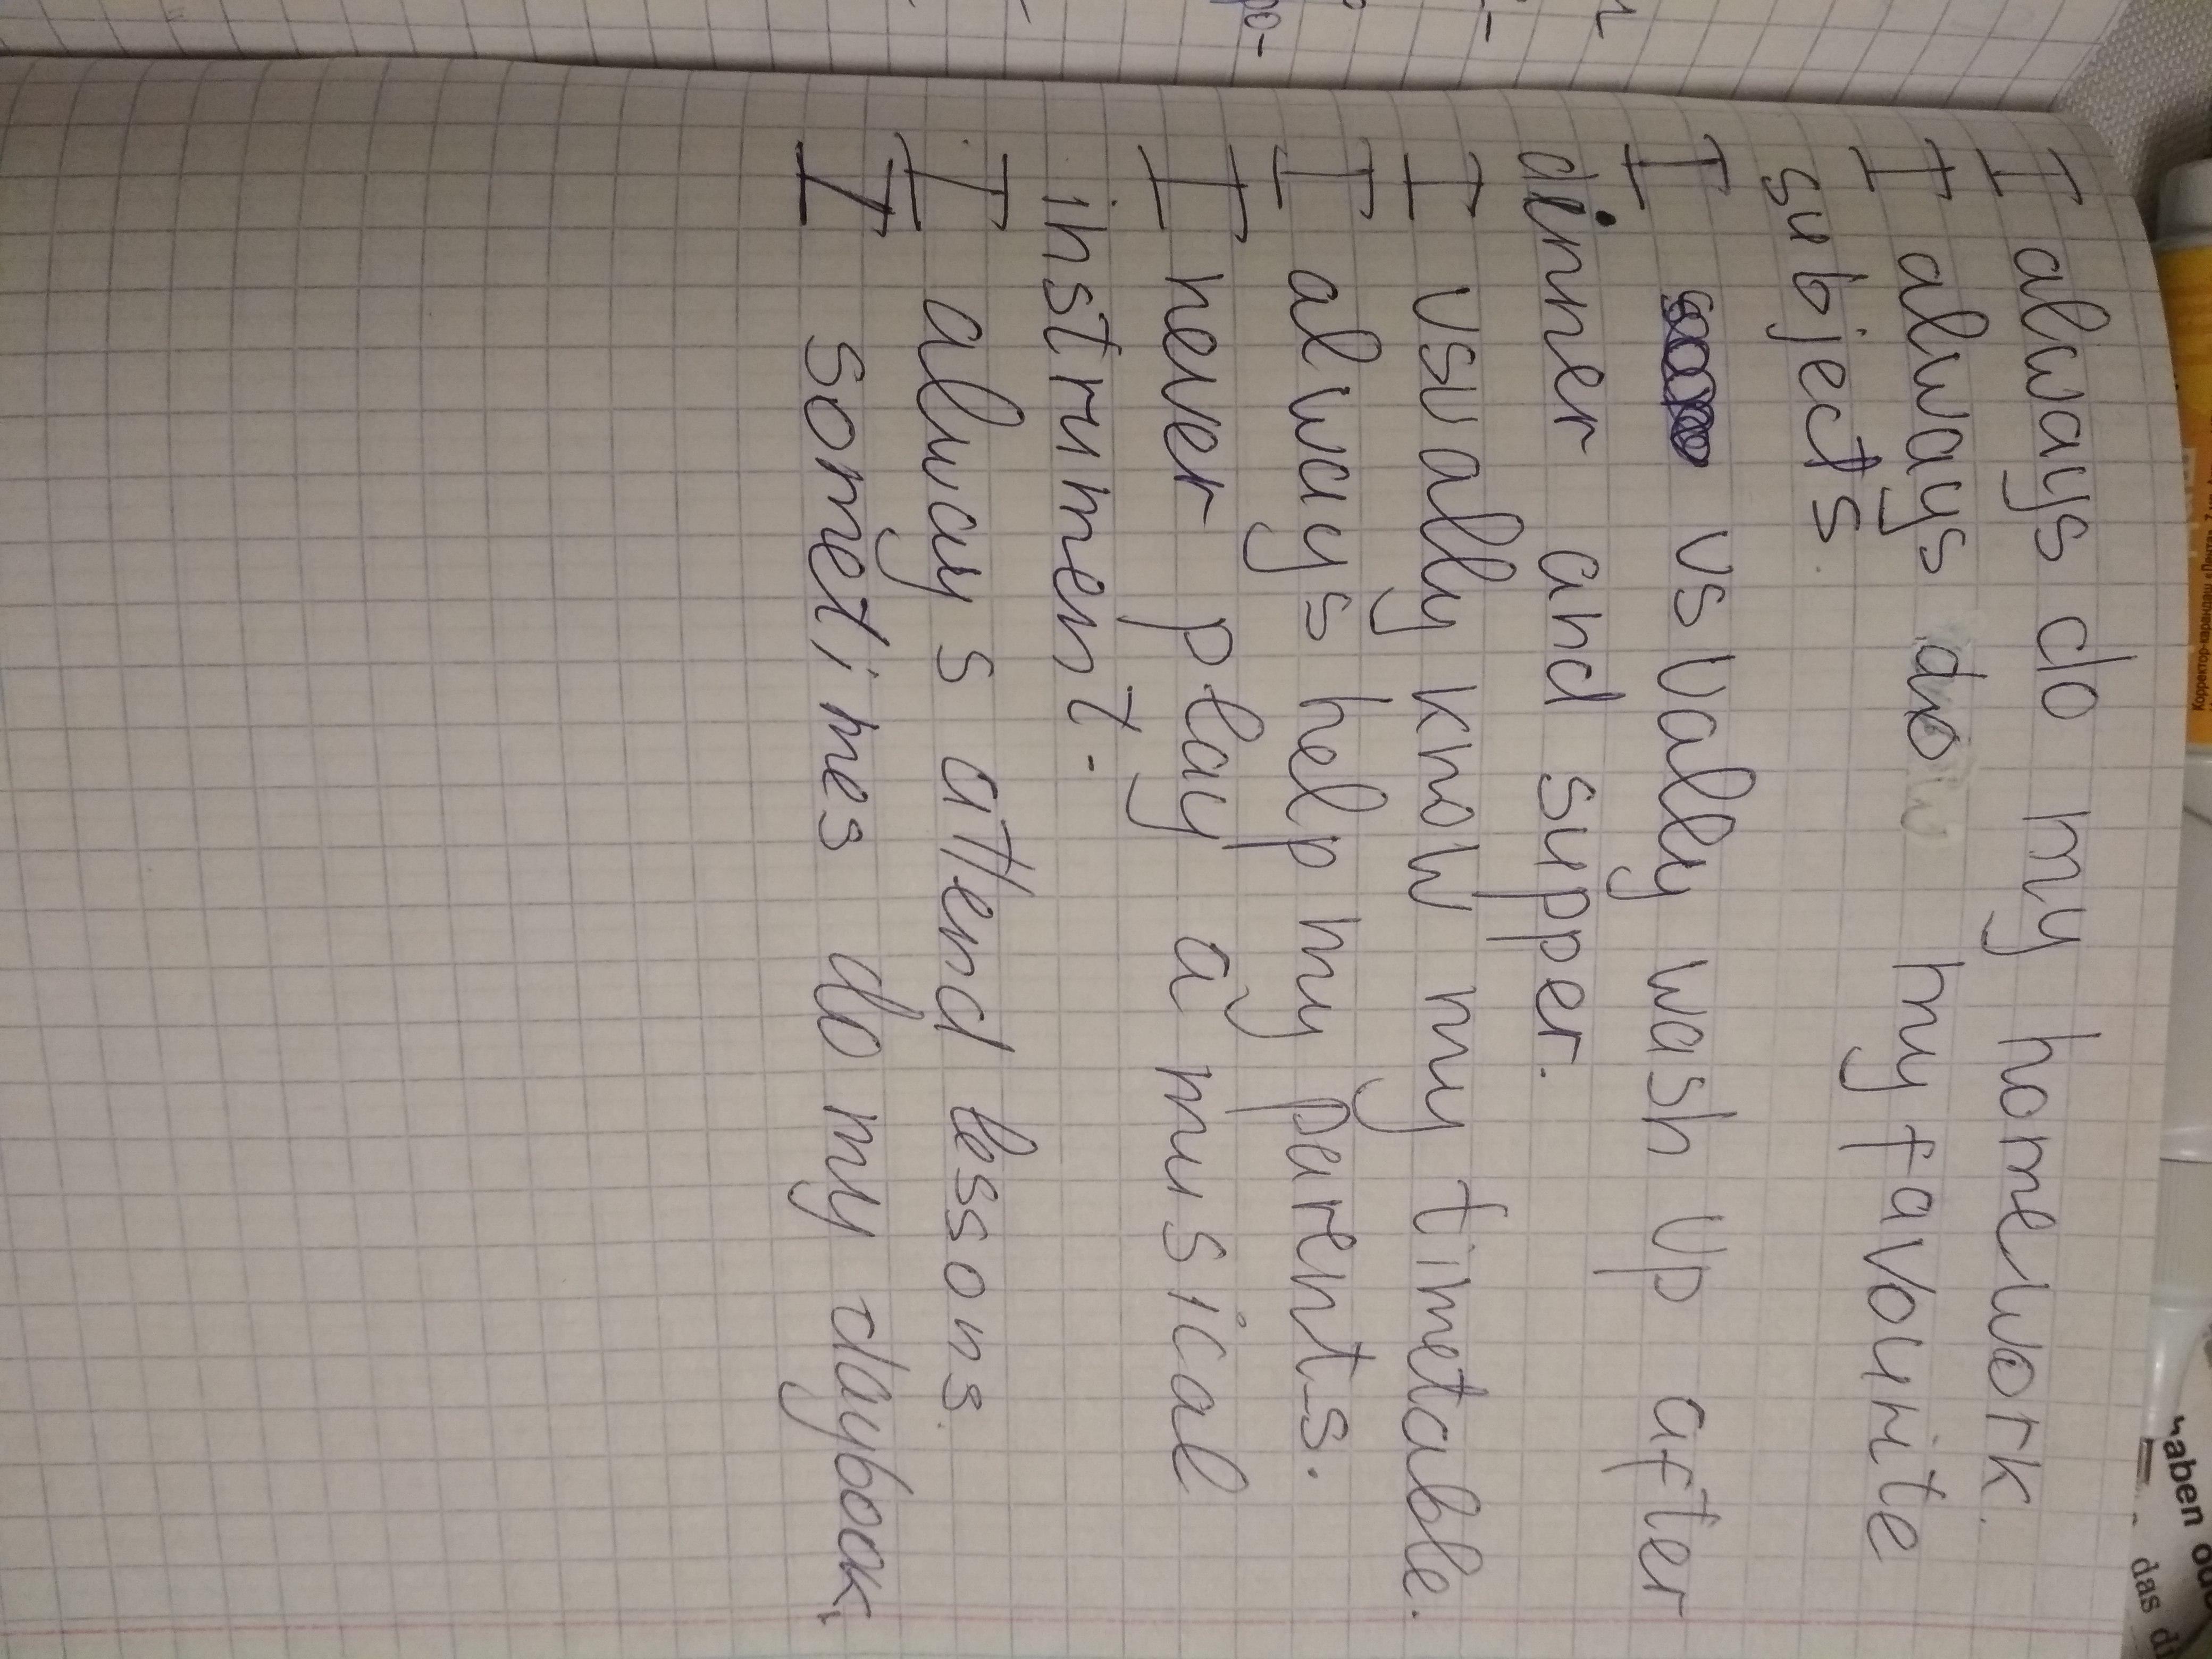 I always do my homework.
I always do my favourite
subjects.
I usually wash up after
dinner and supper.
I usually know my timetable.
I always help my parents.
I never play a musical
instrument.
I always attend lessons.
I sometimes do my daybook.
Корректор-карандаш
haben
das